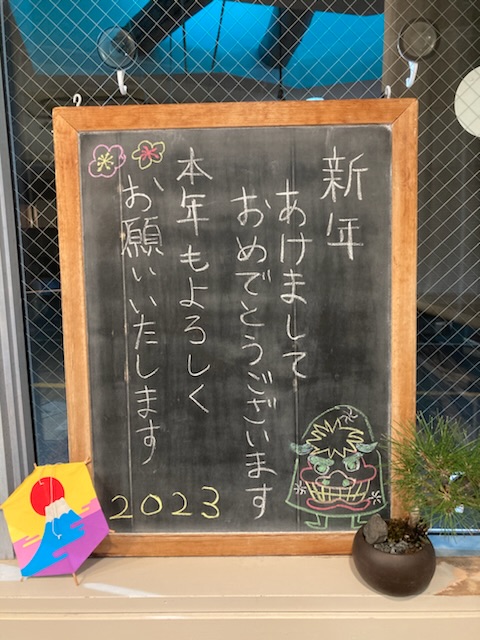 新年
あけまして
おめでとうございます
本年もよろしく
お願いいたします
2023